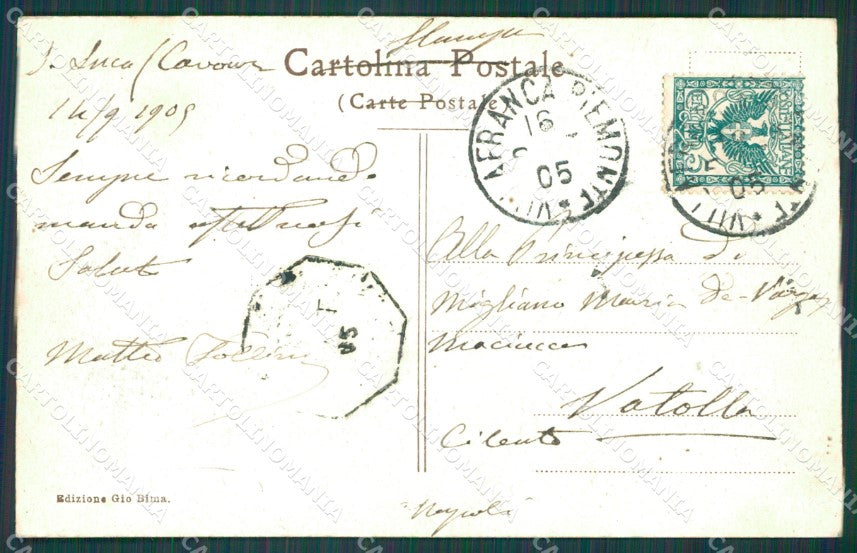 Stampe
Cartolina Postale
(Carte Postale)
S. Luca (Cavour
14/9 1905
Sempre ricordando
manda affettuosi
Saluti
Matteo
VILLAFRANCA PIEMONTE
16
05
05
05
Alla Principessa di
Migliano Maria de
Vatolla
Cilento
Napoli
Edizione Gio Bima.
CARTOLINOMANIA